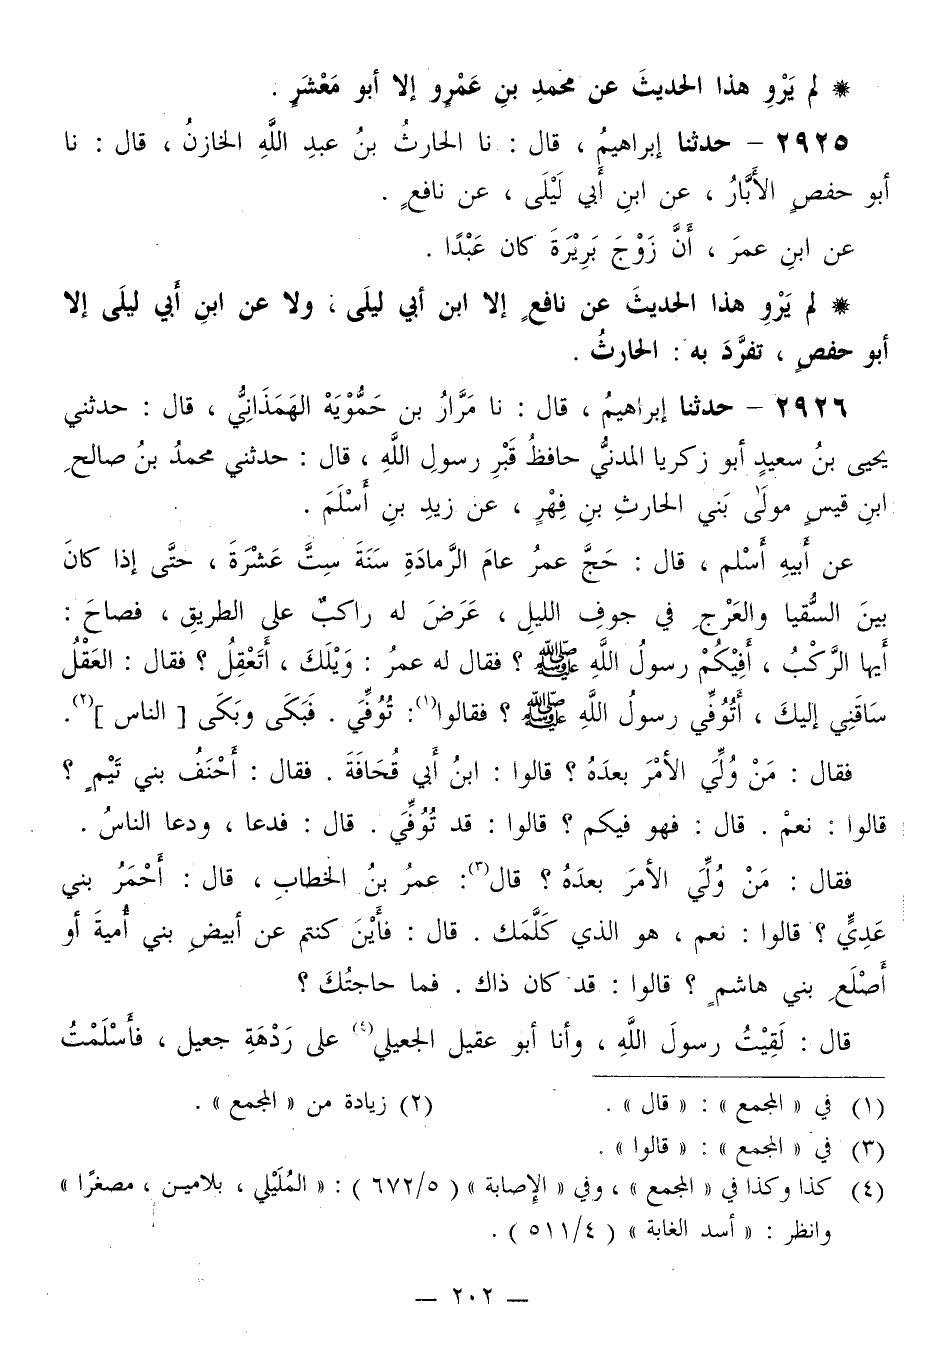 * لم يَرْوِ هذا الحديثَ عن محمدِ بنِ عَمْرٍو إلا أبو مَعْشَرٍ .
٢٩٢٥ – حدثنا إبراهيمُ ، قال : نا الحارثُ بنُ عبدِ اللَّهِ الخازنُ ، قال : نا
أبو حفصٍ الأَبَّارُ ، عن ابنِ أبي لَيْلَى ، عن نافعٍ .
عن ابنِ عمرَ ، أَنَّ زَوْجَ بَرِيْرَةَ كان عَبْدًا .
* لم يَرْوِ هذا الحديثَ عن نافعٍ إلا ابن أبي ليلَى ، ولا عن ابنِ أَبي ليلَى إلا
أبو حفصٍ ، تفرَّدَ به : الحارثُ .
٢٩٢٦ – حدثنا إبراهيمُ ، قال : نا مَرَّارُ بن حَمُّوْيَهْ الهَمَذَانِيُّ ، قال : حدثني
يحيى بنُ سعيدٍ أبو زكريا المدنيُّ حافظُ قَبْرِ رسولِ اللَّهِ ، قال : حدثني محمدُ بنُ صالحِ
ابنِ قيسٍ مولَى بَني الحارثِ بنِ فِهْرٍ ، عن زيدِ بنِ أَسْلَمَ .
عن أَبيهِ أَسْلم ، قال : حَجَّ عمرُ عامَ الرَّمادَةِ سَنَةَ سِتَّ عَشْرَةَ ، حتَّى إذا كانَ
بينَ السُّقيا والعَرْجِ في جوفِ الليلِ ، عَرَضَ له راكبٌ على الطريقِ ، فصاحَ :
أَيها الرَّكْبُ ، أَفِيْكُمْ رسولُ اللَّهِ ﷺ ؟ فقال له عمرُ : وَيْلَكَ ، أَتَعْقِلُ ؟ فقال : العَقْلُ
سَاقَنِي إليكَ ، أَتُوُفِّي رسولُ اللَّهِ ﷺ ؟ فقالوا(١): تُوُفِّي . فَبَكَى وبَكَى [ الناس ](٢).
فقال : مَنْ وُلِّيَ الأمْرَ بعدَهُ ؟ قالوا : ابنُ أبي قُحَافَةَ . فقال : أَحْنَفُ بني تَيْمٍ ؟
قالوا : نعمْ . قال : فهو فيكم ؟ قالوا : قد تُوُفِّيَ . قال : فدعا ، ودعا الناسُ .
فقال : مَنْ وُلِّيَ الأمرَ بعدَهُ ؟ قال(٣): عمرُ بنُ الخطابِ ، قال : أَحْمَرُ بني
عَدِيٍّ ؟ قالوا : نعم ، هو الذي كَلَّمَك . قال : فأَيْنَ كنتم عن أبيضِ بني أُميةَ أو
أَصْلَعِ بني هاشمٍ ؟ قالوا : قد كان ذاك . فما حاجتُكَ ؟
قال : لَقِيْتُ رسولَ اللَّهِ ، وأنا أبو عقيل الجعيلي(٤) على رَدْهَةِ جعيل ، فأَسْلَمْتُ
(١) في « المجمع » : « قال » . (٢) زيادة من « المجمع » .
(٣) في « المجمع » : « قالوا » .
(٤) كذا وكذا في « المجمع » ، وفي « الإصابة » ( ٦٧٢/٥ ) : « المُلَيْلي ، بلامين ، مصغرًا »
وانظر : « أسد الغابة » ( ٥١١/٤ ) .
— ٢٠٢ —